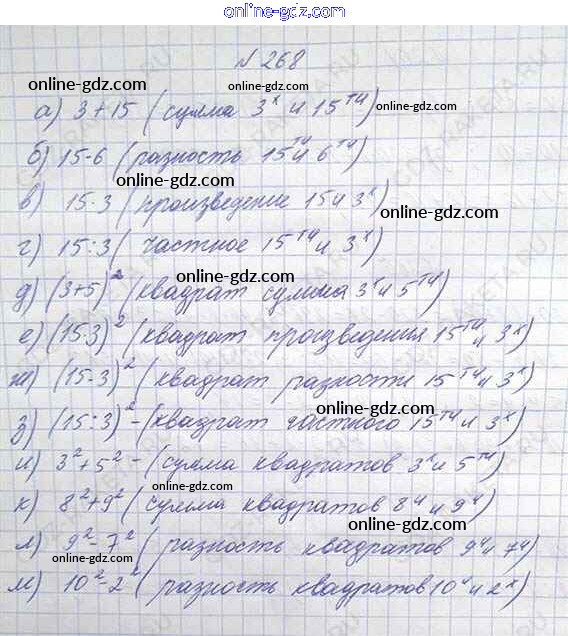 online-gdz.com
№ 268
online-gdz.com
online-gdz.com
а) 3+15 (сумма 3ˣ и 15ᵀᴵᴵ)
online-gdz.com
б) 15-6 (разность 15ᵀᴵᴵ и 6ᵀᴵᴵ)
online-gdz.com
в) 15·3 (произведение 15 и 3ˣ)
online-gdz.com
г) 15:3 (частное 15ᵀᴵᴵ и 3ˣ)
online-gdz.com
д) (3+5)² (квадрат сумма 3ˣ и 5ᵀᴵᴵ)
online-gdz.com
е) (15·3)² (квадрат произведения 15ᵀᴵᴵ и 3ˣ)
online-gdz.com
ж) (15-3)² (квадрат разности 15ᵀᴵᴵ и 3ˣ)
online-gdz.com
з) (15:3)² - (квадрат частного 15ᵀᴵᴵ и 3ˣ)
online-gdz.com
и) 3²+5² - (сумма квадратов 3ˣ и 5ᵀᴵᴵ)
online-gdz.com
к) 8²+9² (сумма квадратов 8ᴵᴵ и 9ᴵᴵ)
online-gdz.com
л) 9²-7² (разность квадратов 9ᴵᴵ и 7ᴵᴵ)
online-gdz.com
м) 10²-2² (разность квадратов 10ᴵᴵ и 2ˣ)
online-gdz.com